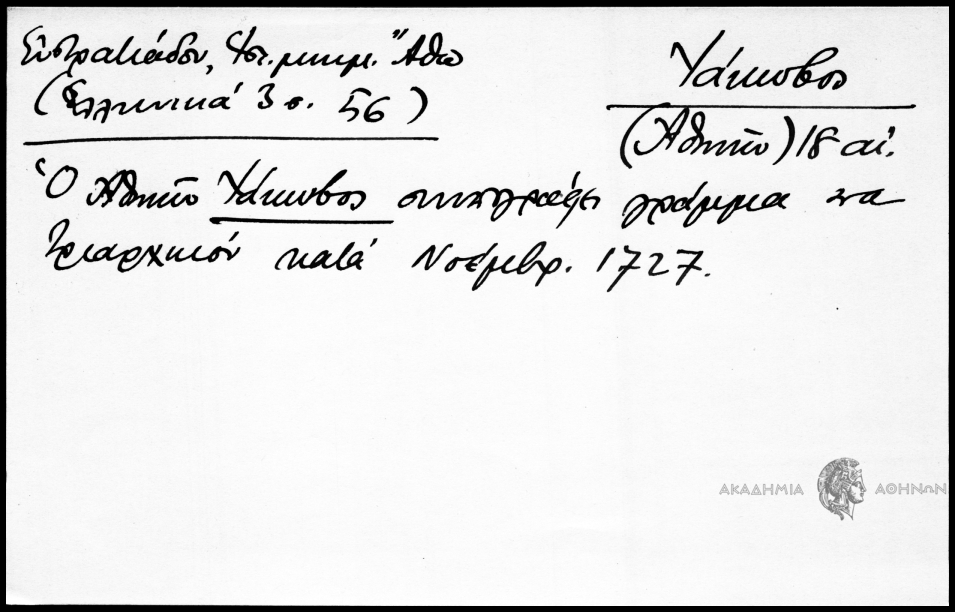 Εὐστρατιάδου, Ἱστ. μνημ. Ἄθω
(Ἑλληνικά 3 σ. 56)
Ἰάκωβος
(Ἀθηνῶν) 18 αἰ.
Ὁ Ἀθηνῶν Ἰάκωβος συνυπογράφει γράμμα πα
τριαρχικόν κατά Νοέμβρ. 1727.
ΑΚΑΔΗΜΙΑ ΑΘΗΝΩΝ